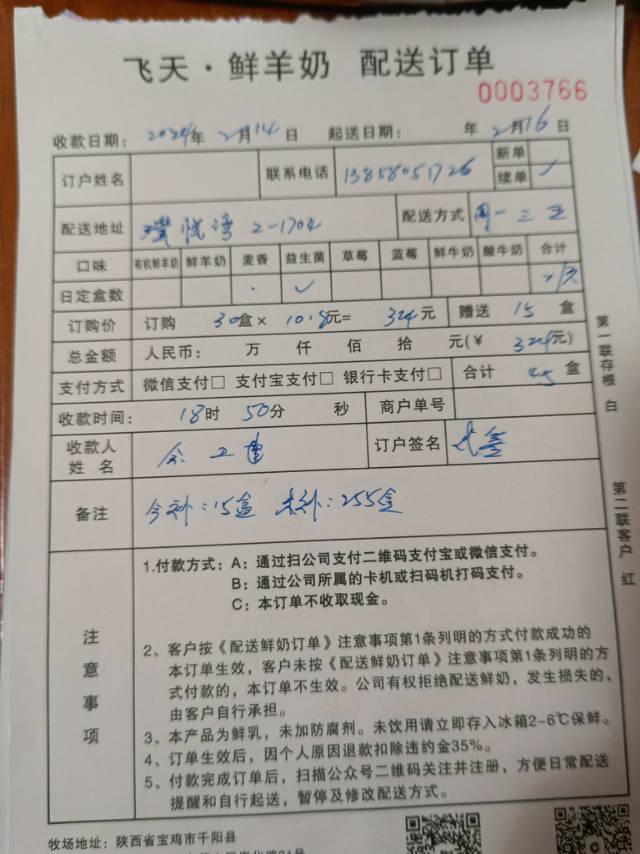 飞天·鲜羊奶 配送订单
0003766
收款日期: 2024年 2月14日 起送日期: 年 2月16日
订户姓名 联系电话 13858051726 新单
续单 ✓
配送地址 璞悦湾 2-1704 配送方式 周一三五
口味 有机鲜羊奶 鲜羊奶 麦香 益生菌 草莓 蓝莓 鲜牛奶 酸牛奶 合计
日定盒数 ✓
订购价 订购 30盒× 10.8元= 324元 赠送 15 盒
总金额 人民币: 万 仟 佰 拾 元(¥ 324元)
支付方式 微信支付□ 支付宝支付□ 银行卡支付□ 合计 45 盒
收款时间: 18时 50分 秒 商户单号
收款人姓名 订户签名
备注 今补:15盒 未补:255盒
第一联存根 白
第二联客户 红
注意事项
1.付款方式: A: 通过扫公司支付二维码支付宝或微信支付。
B: 通过公司所属的卡机或扫码机打码支付。
C: 本订单不收取现金。
2、客户按《配送鲜奶订单》注意事项第1条列明的方式付款成功的
本订单生效,客户未按《配送鲜奶订单》注意事项第1条列明的方
式付款的,本订单不生效。公司有权拒绝配送鲜奶,发生损失的,
由客户自行承担。
3、本产品为鲜乳,未加防腐剂。未饮用请立即存入冰箱2-6℃保鲜。
4、订单生效后,因个人原因退款扣除违约金35%。
5、付款完成订单后,扫描公众号二维码关注并注册,方便日常配送
提醒和自行起送,暂停及修改配送方式。
牧场地址: 陕西省宝鸡市千阳县